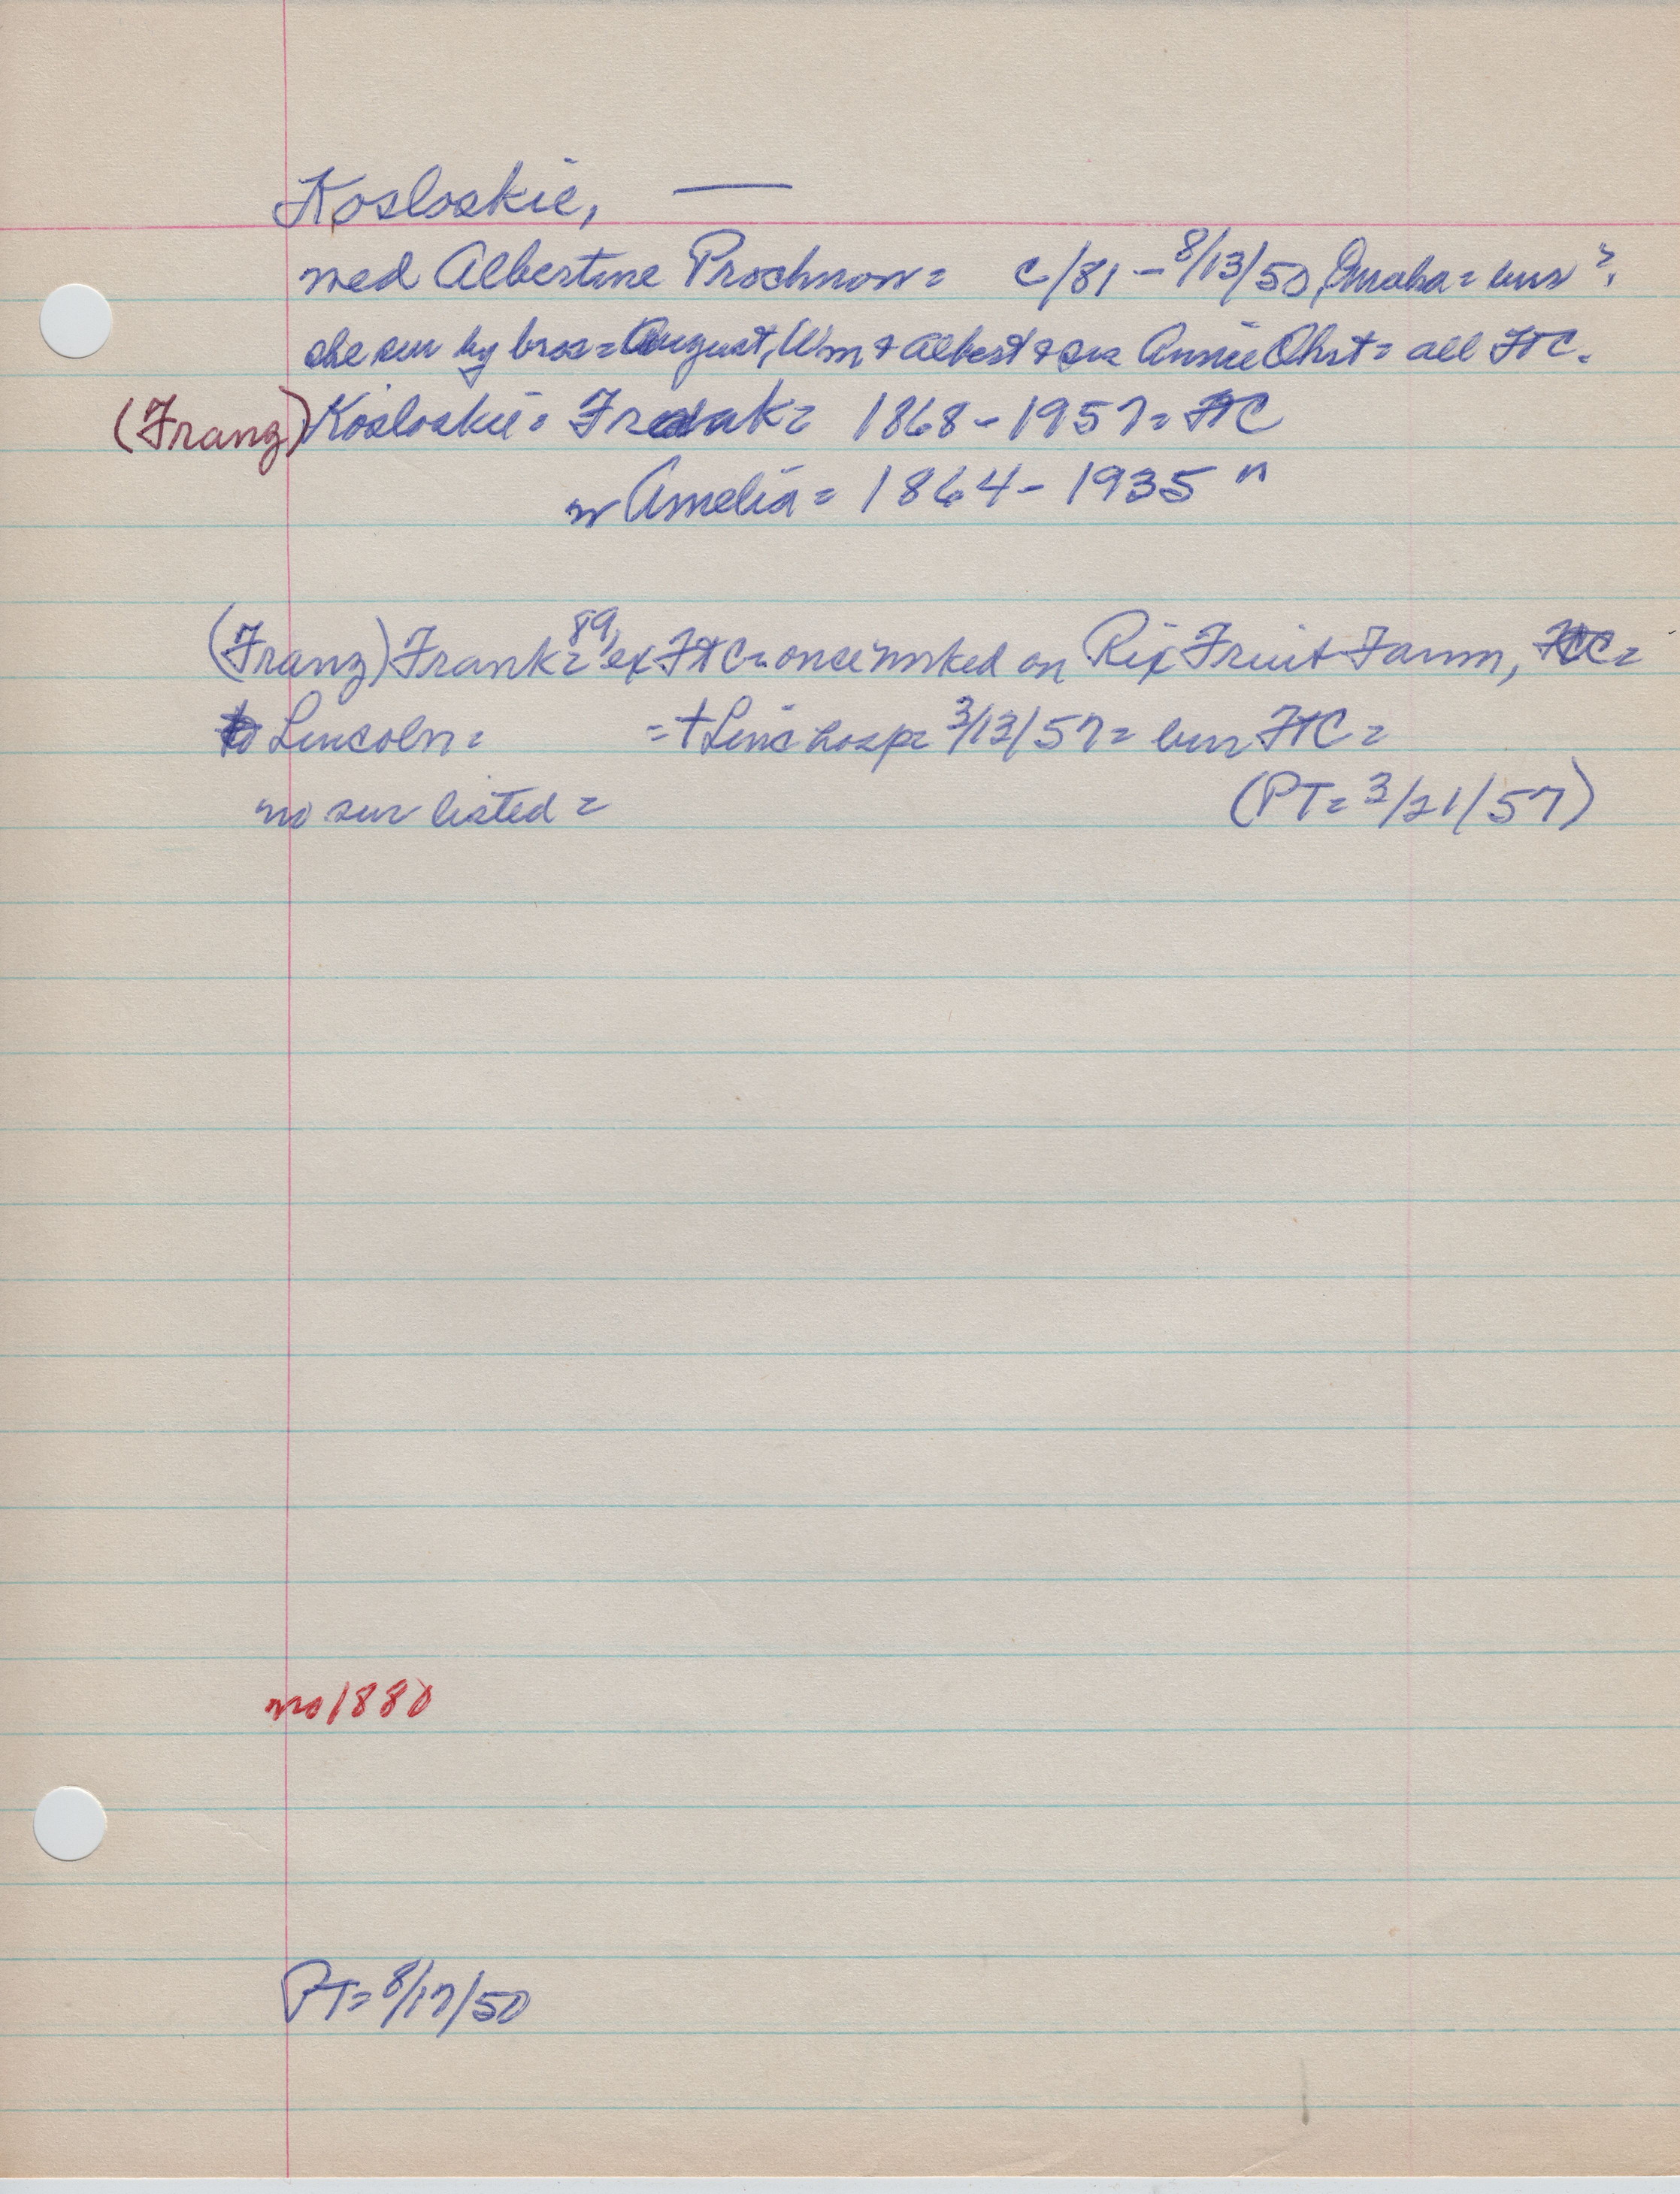 Kosloskie, —
wed Albertine Prochnow = c/81 – 8/13/50, Omaha = bur ?.
she sur by bros = August, Wm & Albert & sis Annie Ohst = all FTC.
(Franz) Kosloskie = Frank = 1868 - 1957 = FTC
w Amelia = 1864 - 1935 "
(Franz) Frank = 89, ex FTC = once worked on Rix Fruit Farm, FTC =
to Lincoln = = † Linc hosp = 3/13/57 = bur FTC =
no sur listed = (PT = 3/21/57)
no 1880
PT = 8/17/50